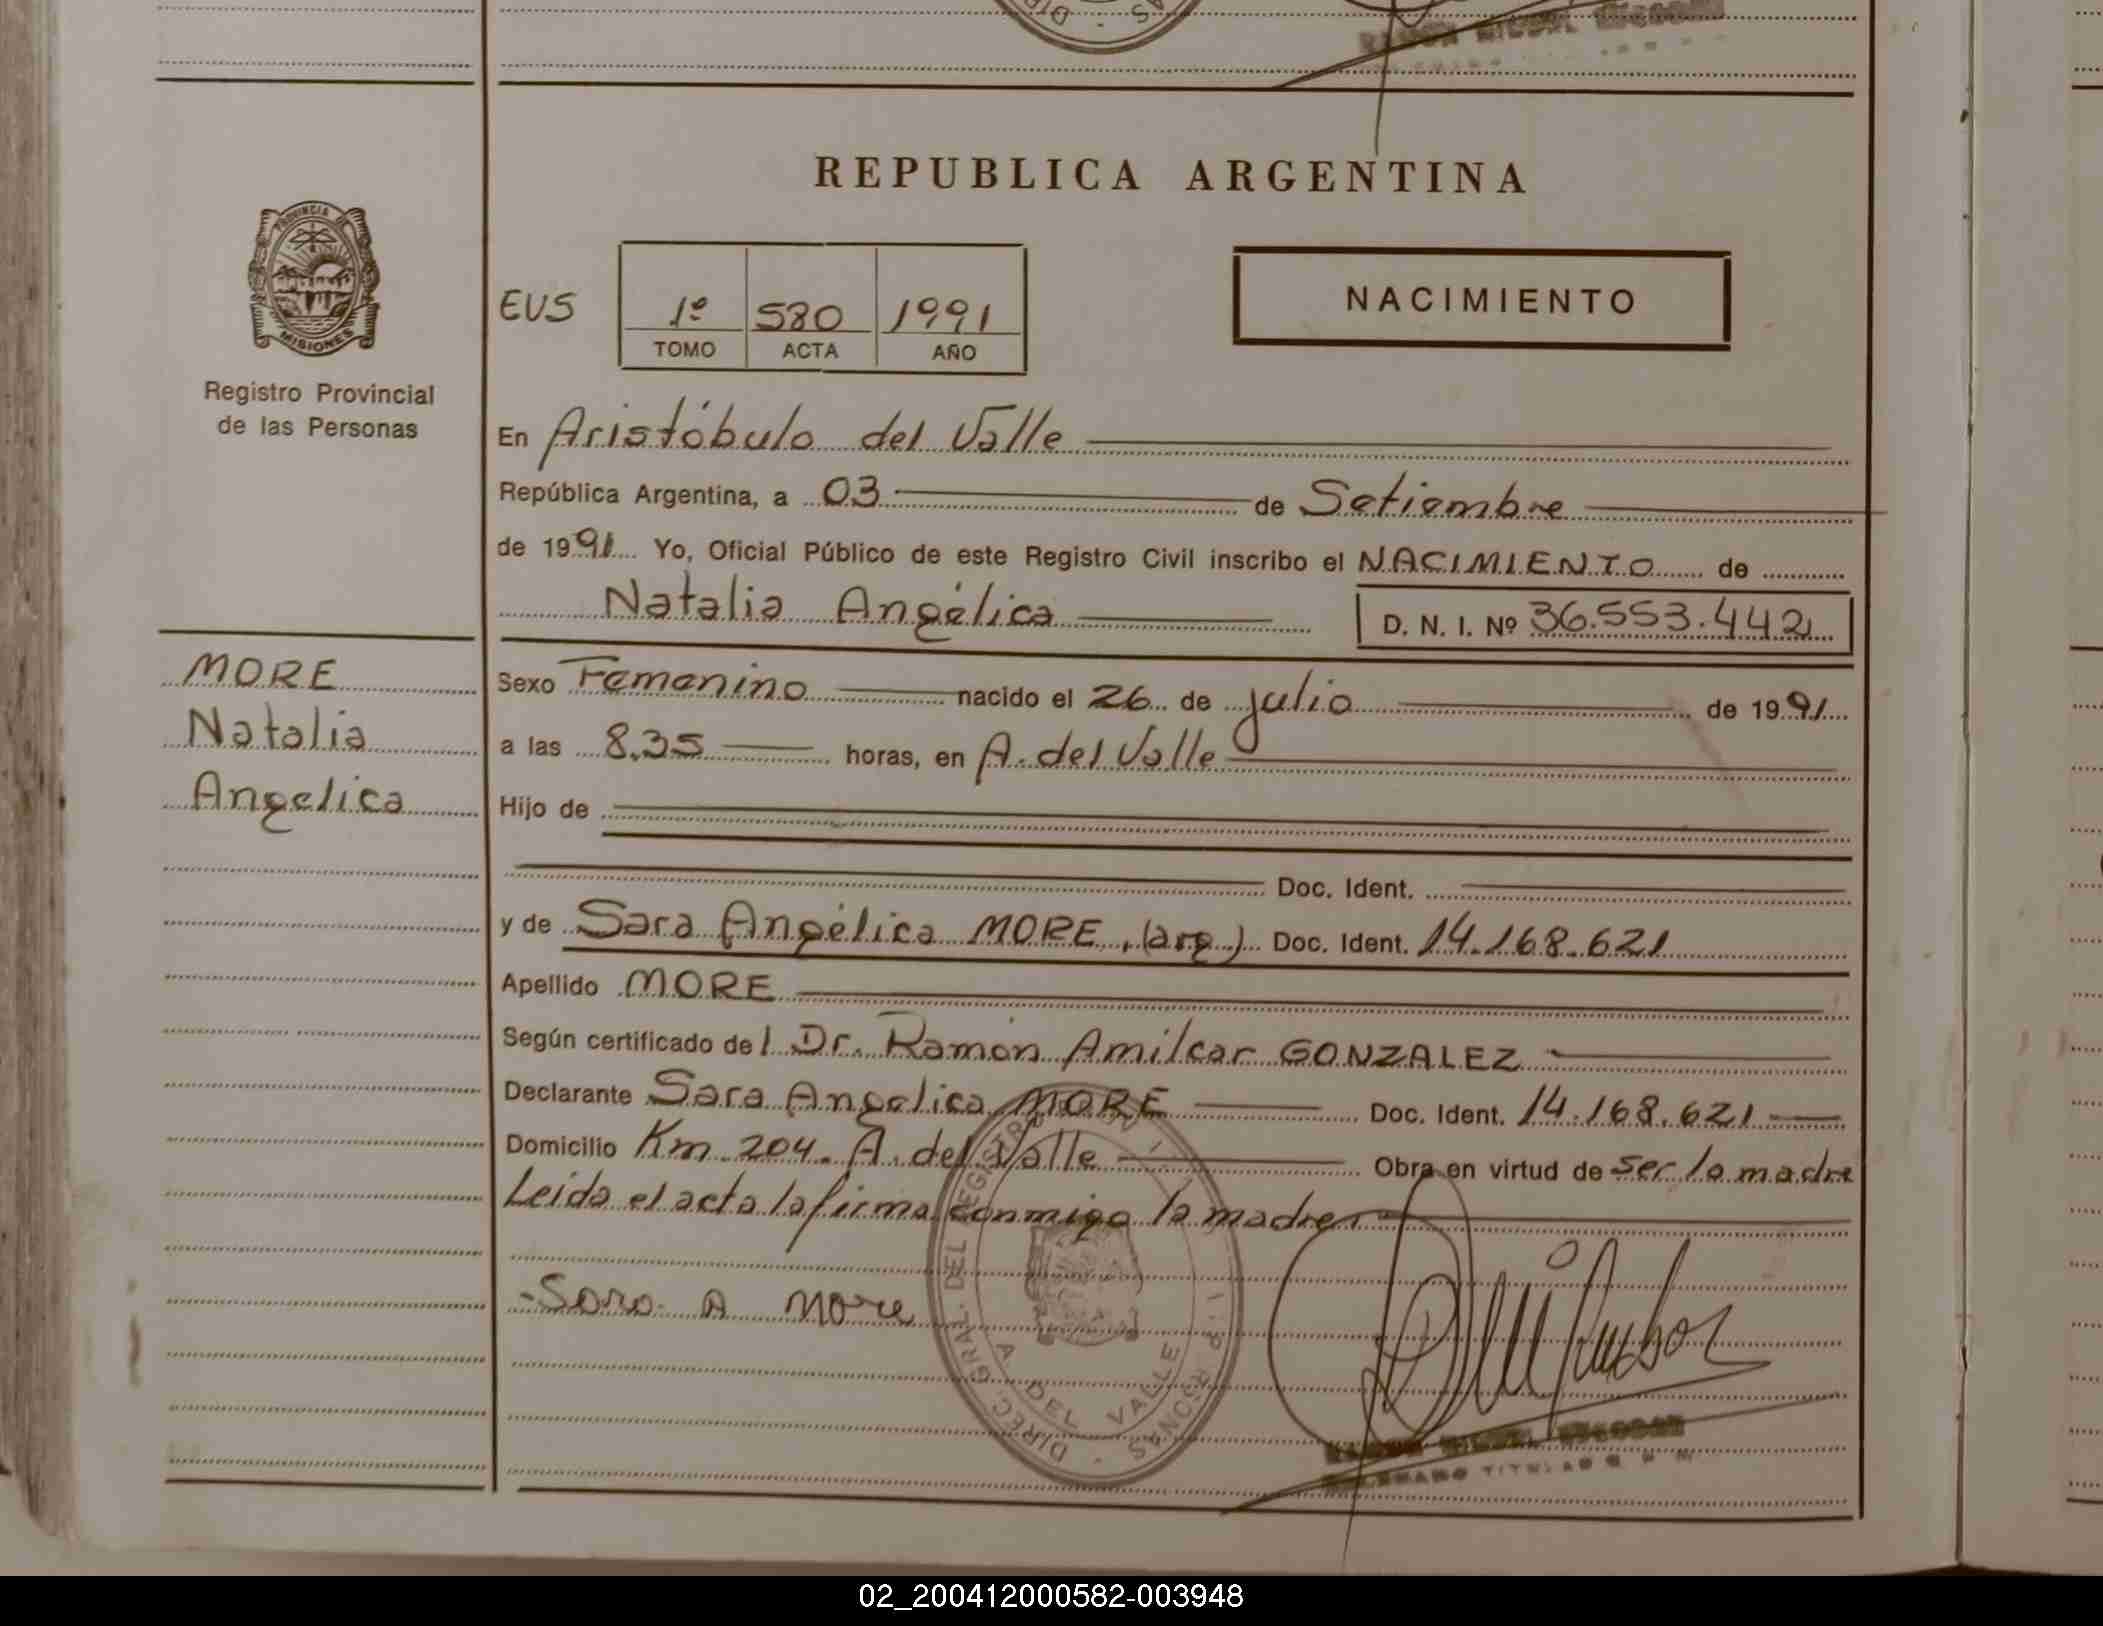 REPUBLICA ARGENTINA
PROVINCIA DE
MISIONES
Registro Provincial
de las Personas
EUS
1º 580 1991
TOMO ACTA AÑO
NACIMIENTO
En Aristóbulo del Valle
República Argentina, a 03 de Setiembre
de 1991 Yo, Oficial Público de este Registro Civil inscribo el NACIMIENTO de
Natalia Angélica D. N. I. Nº 36.553.442
MORE
Natalia
Angelica
Sexo Femenino nacido el 26 de julio de 1991
a las 8.35 horas, en A. del Valle
Hijo de
Doc. Ident.
y de Sara Angélica MORE, (arg.) Doc. Ident. 14.168.621
Apellido MORE
Según certificado del Dr. Ramón Amilcar GONZALEZ
Declarante Sara Angelica MORE Doc. Ident. 14.168.621
Domicilio Km 204. A. del Valle Obra en virtud de ser la madre
Leida el acta la firma conmigo la madre.
-Sara A More
DIREC. GRAL. DEL REGISTRO
A. DEL VALLE
TITULAR
02_200412000582-003948